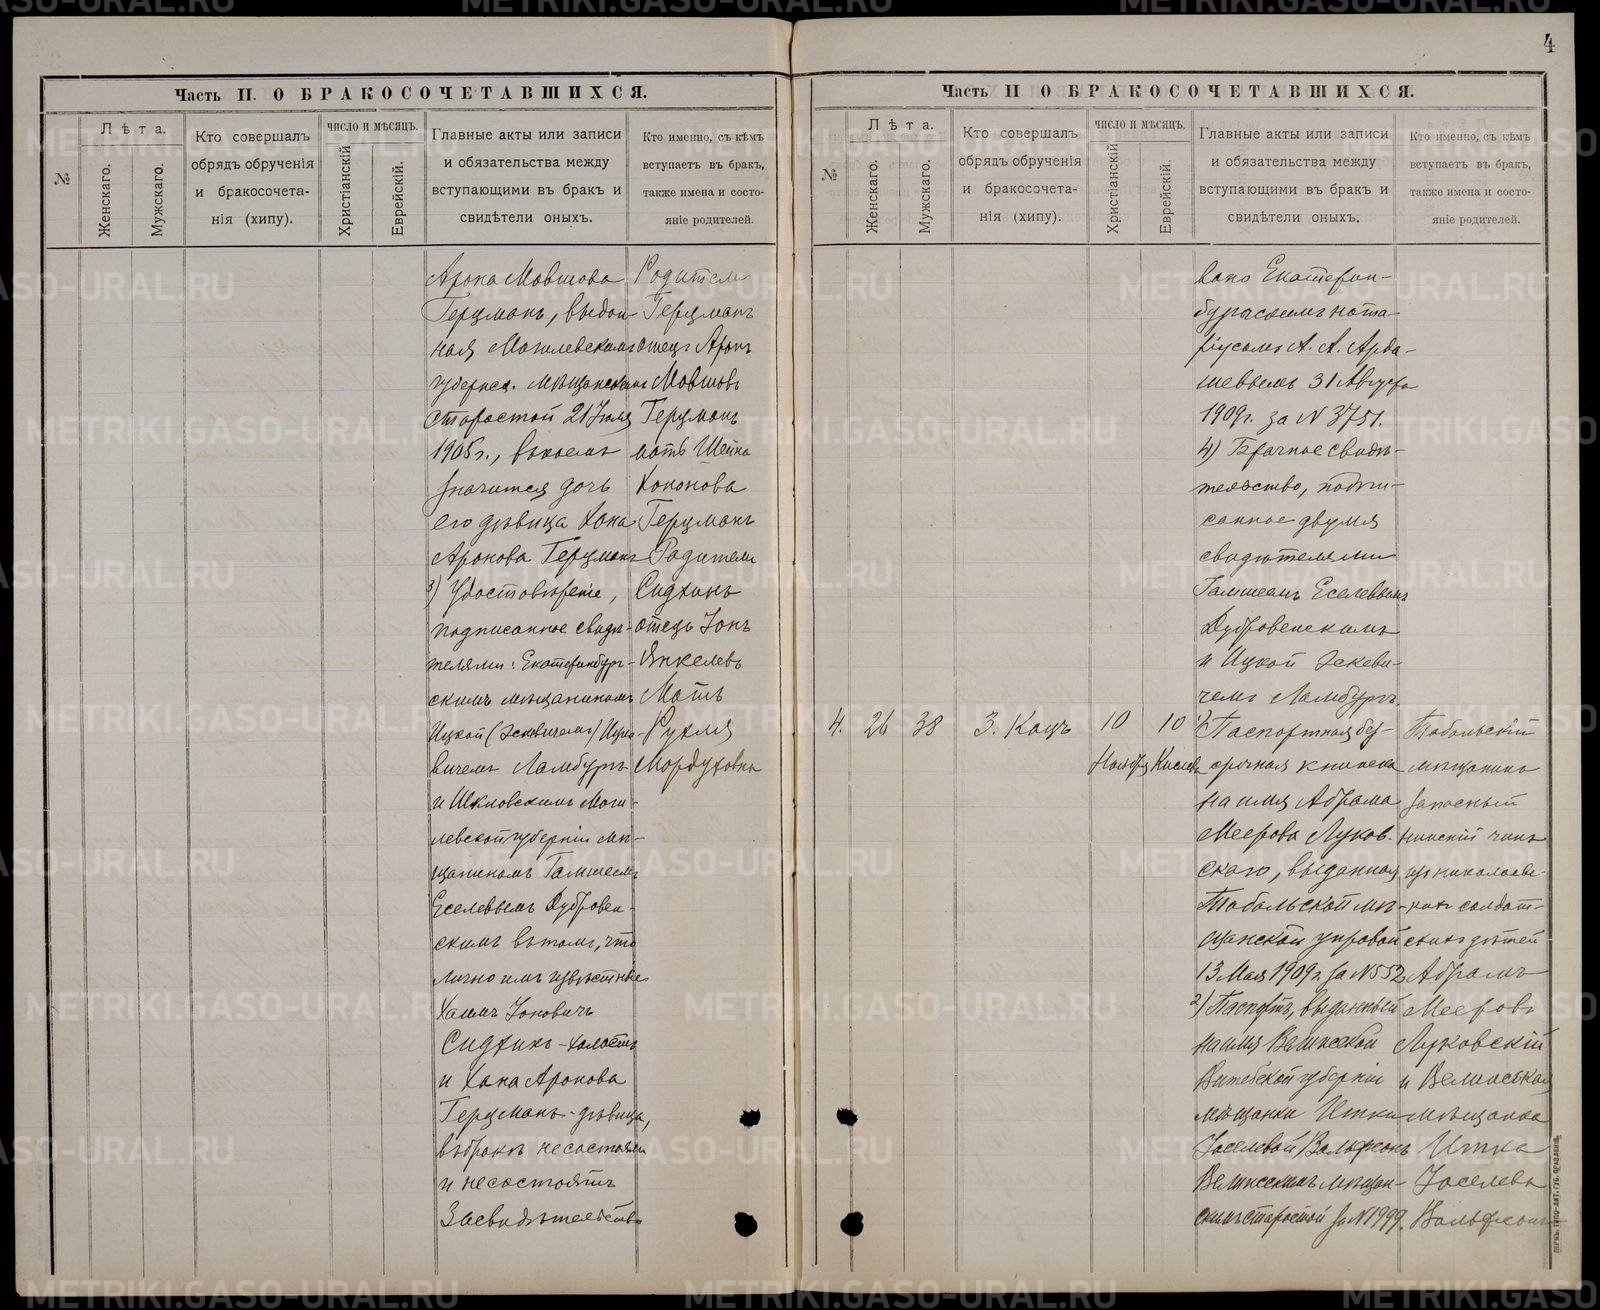 4
Часть II. О БРАКОСОЧЕТАВШИХСЯ.
№
Лѣта.
Женскаго.
Мужскаго.
Кто совершалъ
обрядъ обрученія
и бракосочета-
нія (хипу).
ЧИСЛО И МѢСЯЦЪ.
Христіанскій
Еврейскій.
Главные акты или записи
и обязательства между
вступающими въ бракъ и
свидѣтели оныхъ.
Кто именно, съ кѣмъ
вступаетъ въ бракъ,
также имена и состо-
яніе родителей.
Арона Мовшова
Герцманъ, выдан-
ная Могилевскимъ
губернск. мѣщанскимъ
старостой 21 Іюля
1905 г., въ коемъ
значится дочь
его дѣвица Хана
Аронова Герцманъ
3) Удостовѣреніе,
подписанное свидѣ-
телями: Екатеринбург-
скимъ мѣщаниномъ
Ицкой (Ісковичемъ) Ицко-
вичемъ Ламбургъ
и Шкловскимъ Моги-
левской губерніи мѣ-
щаниномъ Гамшеемъ
Еселевымъ Дубровен-
скимъ въ томъ, что
лично имъ извѣстные
Хаимъ Іоновичъ
Сидкинъ-холостъ
и Хана Аронова
Герцманъ-дѣвица,
въ бракѣ не состояли
и не состоятъ
Засвидѣтельство-
Родители
Герцманъ
отецъ Аронъ
Мовшовъ
Герцманъ
мать Шейна
Хононова
Герцманъ
Родители
Сидкинъ
отецъ Іонъ
Янкелевъ
Мать
Рухля
Мордуховна
Часть II О БРАКОСОЧЕТАВШИХСЯ.
№
Лѣта.
Женскаго.
Мужскаго.
Кто совершалъ
обрядъ обрученія
и бракосочета-
нія (хипу).
ЧИСЛО И МѢСЯЦЪ.
Христіанскій
Еврейскій.
Главные акты или записи
и обязательства между
вступающими въ бракъ и
свидѣтели оныхъ.
Кто именно, съ кѣмъ
вступаетъ въ бракъ,
также имена и состо-
яніе родителей.
вано Екатерин-
бургскимъ нота-
ріусомъ А. А. Арда-
шевымъ 31 Августа
1909 г. за N 3751.
4) Брачное свидѣ-
тельство, подпи-
санное двумя
свидѣтелями
Гамшеемъ Еселевымъ
Дубровенскимъ
и Ицкой Іскови-
чемъ Ламбургъ.
4. 26 38 З. Кацъ 10 Ноября 10 Кислева
1) Паспортная без-
срочная книжка
на имя Абрама
Меерова Луков-
скаго, выданная
Тобольской мѣ-
щанской управой
13 Мая 1909 г. за N 552
2) Паспортъ, выданный
на имя Велижской
Витебской губерніи
мѣщанки Итки
Іоселевой Вольфсонъ
Велижскимъ мѣщан-
скимъ старостой за N 1999.
Тобольскій
мѣщанинъ
запасный
нижній чинъ
изъ николаев-
скихъ солдат-
скихъ дѣтей
Абрамъ
Мееровъ
Луковскій
и Велижская
мѣщанка
Итка
Іоселева
Вольфсонъ
METRIKI.GASO-URAL.RU